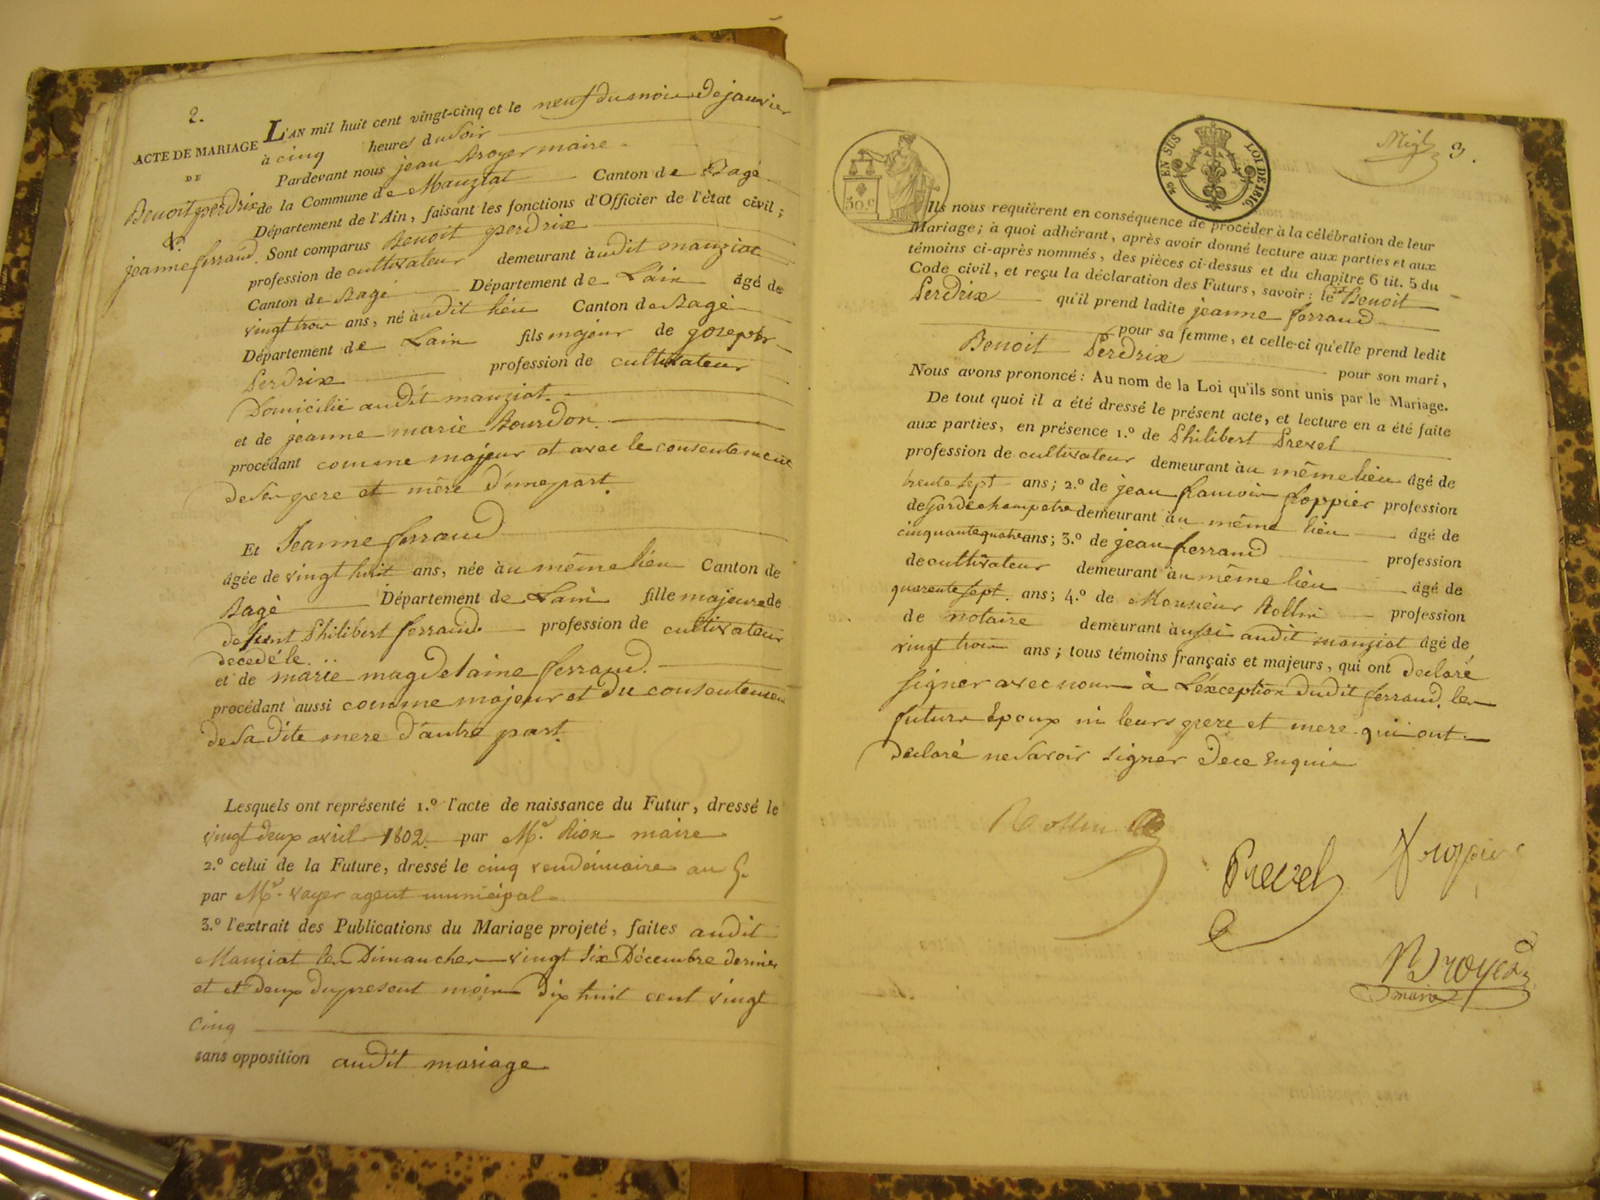 2.
ACTE DE MARIAGE
DE
Benoit perdrix
&
jeanne ferraud.
L'AN mil huit cent vingt-cinq et le neuf du mois de janvier
à cinq heures du soir
Pardevant nous jean Broyer maire
de la Commune de Manziat Canton de Bagé
Département de l'Ain, faisant les fonctions d'Officier de l'état civil;
Sont comparus Benoit perdrix
profession de cultivateur demeurant audit manziat
Canton de Bagé Département de Lain âgé de
vingt trois ans, né audit lieu Canton de Bagé
Département de Lain fils majeur de joseph
Perdrix profession de cultivateur
Domicilié audit manziat.
et de jeanne marie Bourdon.
procédant comme majeur et avec le consentement
de ses pere et mère d'une part.
Et Jeanne ferraud
âgée de vingt huit ans, née au même lieu Canton de
Bagé Département de Lain fille majeure de
defunt Philibert ferraud. profession de cultivateur
decedé le
et de marie magdelaine ferraud.
procédant aussi comme majeur et du consentement
de sa dite mere d'autre part.
Lesquels ont représenté 1.º l'acte de naissance du Futur, dressé le
vingt deux avril 1802. par Mr. Rion maire
2.º celui de la Future, dressé le cinq vendémiaire an 5.
par Mr. Voyer agent municipal
3.º l'extrait des Publications du Mariage projeté, faites audit
Manziat les Dimanches vingt six Décembre dernier
et et deux du present mois dix huit cent vingt
cinq
sans opposition audit mariage
3.
50.c
EN SUS LOI DE 1816
Ils nous requièrent en conséquence de procéder à la célébration de leur
Mariage; à quoi adhérant, après avoir donné lecture aux parties et aux
témoins ci-après nommés, des pièces ci-dessus et du chapitre 6 tit. 5 du
Code civil, et reçu la déclaration des Futurs, savoir: ledit Benoit
Perdrix qu'il prend ladite jeanne ferraud
pour sa femme, et celle-ci qu'elle prend ledit
Benoit Perdrix pour son mari,
Nous avons prononcé: Au nom de la Loi qu'ils sont unis par le Mariage.
De tout quoi il a été dressé le présent acte, et lecture en a été faite
aux parties, en présence 1.º de Philibert Prevel
profession de cultivateur demeurant au même lieu âgé de
trente sept ans; 2.º de jean francois froppier profession
de garde champetre demeurant au même lieu âgé de
cinquante quatre ans; 3.º de jean ferraud profession
de cultivateur demeurant au même lieu âgé de
quarente sept. ans; 4.º de Monsieur Rollin profession
de notaire demeurant aussi audit manziat âgé de
vingt trois ans; tous témoins français et majeurs, qui ont declaré
signer avec nous à l'exception dudit ferraud. les
futurs Epoux ni leurs pere et mere qui ont
declaré ne savoir signer de ce enquis
Rollin
Prevel
froppier
Broyer
maire